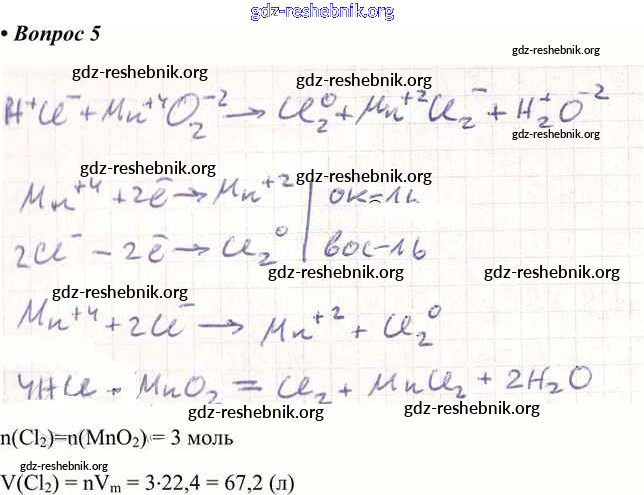 gdz-reshebnik.org
• Вопрос 5
gdz-reshebnik.org
gdz-reshebnik.org gdz-reshebnik.org
H⁺Cl⁻ + Mn⁺⁴O₂⁻² → Cl₂⁰ + Mn⁺²Cl₂⁻ + H₂⁺O⁻²
gdz-reshebnik.org
gdz-reshebnik.org gdz-reshebnik.org
Mn⁺⁴ + 2ē → Mn⁺² | ок-1к
2Cl⁻ - 2ē → Cl₂⁰ | вос-1в
gdz-reshebnik.org gdz-reshebnik.org
gdz-reshebnik.org
Mn⁺⁴ + 2Cl⁻ → Mn⁺² + Cl₂⁰
4HCl + MnO₂ = Cl₂ + MnCl₂ + 2H₂O
gdz-reshebnik.org gdz-reshebnik.org
n(Cl₂)=n(MnO₂) = 3 моль
gdz-reshebnik.org
V(Cl₂) = nVₘ = 3·22,4 = 67,2 (л)